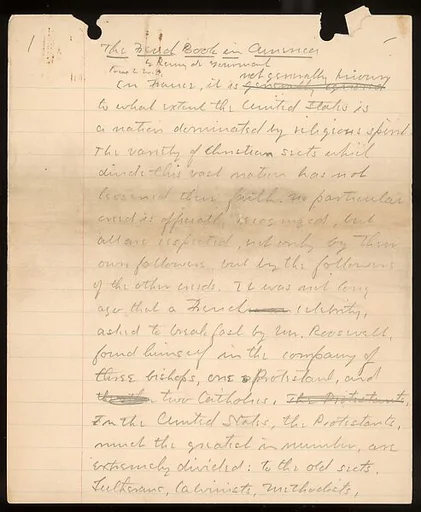 The Freud Book in America
by Remy de Gourmont
not generally known
In France, it is generally ignored
to what extent the United States is
a nation dominated by religious spirit.
The variety of Christian sects which
divide this vast nation has not
lessened their faith. No particular
creed is officially recognized, but
all are respected, not only by their
own followers, but by the followers
of the other creeds. It was not long
ago that a French celebrity,
asked to breakfast by Mr. Roosevelt,
found himself in the company of
three bishops, one Protestant, and
two Catholics. The Protestants,
In the United States, the Protestants,
much the greatest in number, are
extremely divided: to the old sects,
Lutherans, Calvinists, Methodists,